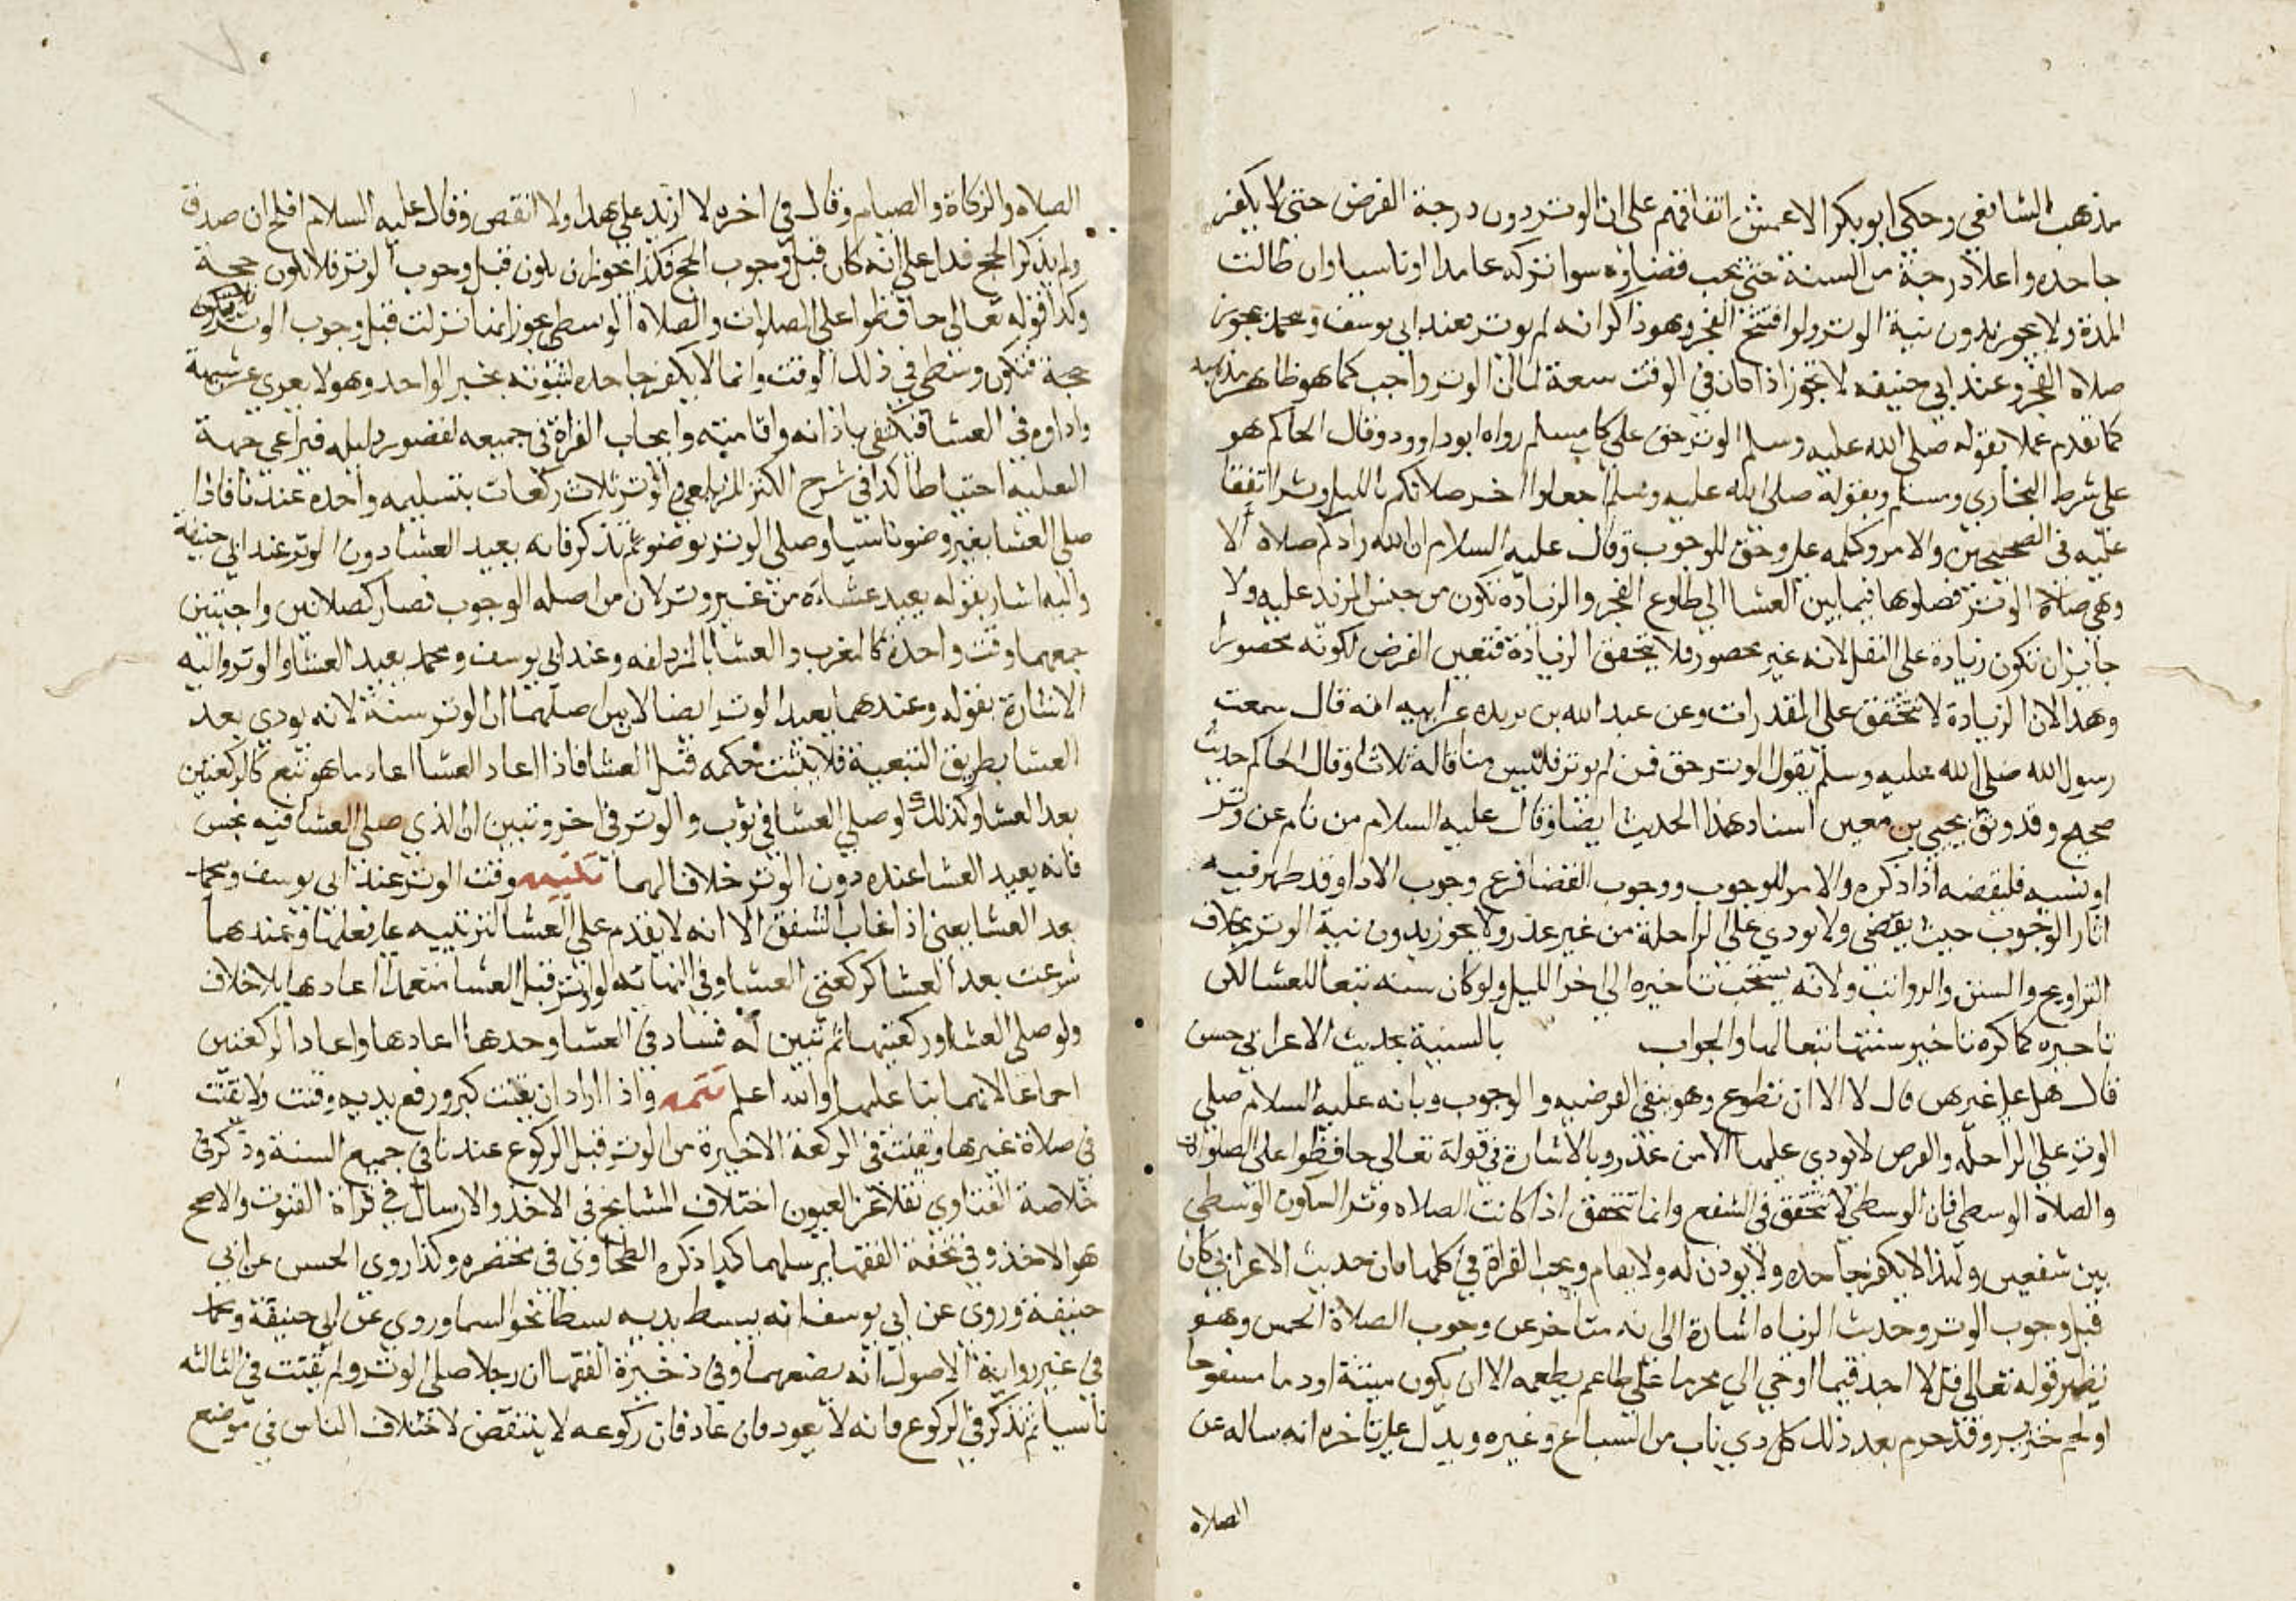 مذهب الشافعي وحكي ابو بكر الاعمش اتفاقهم علي ان الوتر دون درجة الفرض حتي لا يكفر
جاحده واعلا درجة من السنة حتي يجب قضاوه سوا تركه عامدا او ناسيا وان طالت
المدة ولا يجوز بدون نية الوتر ولو افتتح الفجر وهو ذاكر انه لم يوتر فعند ابي يوسف ومحمد يجوز
صلاه الفجر وعند ابي حنيفه لا يجوز اذا كان في الوقت سعة لما ان الوتر واجب كما هو ظاهر مذهبه
كما تقدم عملا بقوله صلي الله عليه وسلم الوتر حق علي كل مسلم رواه ابو داوود وقال الحاكم هو
علي شرط البخاري ومسلم وبقوله صلي الله عليه وسلم اجعلوا اخر صلاتكم بالليل وترا اتفقا
عليه في الصحيحين والامر وكلمه علي وحق للوجوب وقال عليه السلام ان الله زادكم صلاه ألا
وهي صلاة الوتر فصلوها فيما بين العشا الي طلوع الفجر والزيادة تكون من جنس المزيد عليه ولا
جايز ان تكون زيادة علي النفل لانه غير محصور فلا يتحقق الزيادة فتعين الفرض لكونه محصورا
وهذا لان الزيادة لا تتحقق علي المقدرات وعن عبد الله بن بريده عن ابيه انه قال سمعت
رسول الله صلي الله عليه وسلم يقول الوتر حق فمن لم يوتر فليس منا قاله ثلاثا وقال الحاكم حديث
صحيح وقد وثق يحيي بن معين اسناد هذا الحديث ايضا وقال عليه السلام من نام عن وتر
او نسيه فليقضه اذا ذكره والامر للوجوب ووجوب القضا فرع وجوب الادا وقد ظهر فيه
اثار الوجوب حيث يقضي ولا يودي علي الراحلة من غير عذر ولا يجوز بدون نية الوتر بخلاف
التراويح والسنن والرواتب ولانه يستحب تاخيره الي اخر الليل ولو كان سنه تبعا للعشا لكن
تاخيره كما كره تاخير سنتها تبعا لها والجواب بالسنية بحديث الاعرابي حسن
قال هل علي غيرهن قال لا الا ان تطوع وهو ينفي الفرضيه والوجوب وبانه عليه السلام صلي
الوتر علي الراحله والفرض لا يودي عليها الا من عذر وبالاشارة في قوله تعالي حافظوا علي الصلوات
والصلاة الوسطي فان الوسطي لا تتحقق في الشفع وانما تتحقق اذا كانت الصلاه وترا ليكون الوسطي
بين شفعين ولهذا لا يكفر جاحده ولا يوذن له ولا يقام ويجب القراة في كلها فان حديث الاعرابي كان
قبل وجوب الوتر وحديث الزياه اشارة الي انه متاخر عن وجوب الصلاة الخمس وهو
نظير قوله تعالي قل لا اجد فيما اوحي الي محرما علي طاعم يطعمه الا ان يكون ميتة او دما مسفوحا
او لحم خنزير وقد حرم بعد ذلك كل دي ناب من السباع وغيره ويدل علي تاخره انه ساله عن
الصلاه
الصلاه والزكاة والصيام وقال في اخره لا ازيد علي هدا ولا انقص وقال عليه السلام افلح ان صدق
ولم يذكر الحج فدل علي انه كان قبل وجوب الحج فكذا يجوز ان يكون قبل وجوب الوتر فلا يكون حجة
وكذا قوله تعالي حافظوا علي الصلوات والصلاة الوسطي يجوز انها نزلت قبل وجوب الوتر
حجة فتكون وسطي في ذلك الوقت وانما لا يكفر جاحده لثبوته بخبر الواحد وهو لا يعري عن شبهة
واداوه في العشا فيكتفي باذانه واقامته وايجاب القراة في جميعه لقصور دليله فيراعي جهة
النفلية احتياطا كذا في شرح الكنز للزيلعي والوتر ثلاث ركعات بتسليمه واحده عندنا فاذا
صلي العشا بغير وضو ناسيا وصلي الوتر بوضو ثم تذكر فانه يعيد العشا دون الوتر عند ابي حنيفة
واليه اشار بقوله يعيد عشاءه من غير وتر لان من اصله الوجوب فصار كصلاتين واجبتين
جمعهما وقت واحدة كالمغرب والعشا بالمزدلفه وعند ابي يوسف ومحمد يعيد العشا والوتر واليه
الاشارة بقوله وعندهما يعيد الوتر ايضا لان من اصلهما ان الوتر سنة لانه يودي بعد
العشا بطريق التبعية فلا يثبت حكمه قبل العشا فاذا اعاد العشا اعاد ما هو تبع كالركعتين
بعد العشا وكذلك لو صلي العشا في ثوب والوتر في اخر وتبين ان الذي صلي العشا فيه نجس
فانه يعيد العشا عنده دون الوتر خلافا لهما تنبيه وقت الوتر عند ابي يوسف ومحمد
بعد العشا يعني اذا غاب الشفق الا انه لا يقدم علي العشا للترتيبه علي فعلها وعندهما
شرعت بعد العشا كركعتي العشا وفي النهايه لو اوتر قبل العشا متعمدا اعادها بلا خلاف
ولو صلي العشا وركعتيها ثم تبين له فساد في العشا وحدها اعادها واعاد الركعتين
اجماعا لانهما بنا عليها والله اعلم تتمه واذا اراد ان يقنت كبر ورفع يديه وقنت ولا يقنت
في صلاة غيرها ويقنت في الركعة الاخيرة من الوتر قبل الركوع عندنا في جميع السنة وذكر في
خلاصة الفتاوي نقلا عن العيون اختلاف المشايخ في الاخذ والارسال في قراة القنوت والاصح
هو الاخذ وفي تحفة الفقها يرسلهما كذا ذكره الطحاوي في مختصره وكذا روي الحسن عن ابي
حنيفة وروي عن ابي يوسف انه يبسط يديه بسطا نحو السما وروي عن ابي حنيفة ومحمد
في غير رواية الاصول انه يضعهما وفي ذخيرة الفقها ان رجلا صلي الوتر ولم يقنت في الثالثه
ناسيا ثم تذكر في الركوع فانه لا يعود فان عاد فان ركوعه لا ينتقض لاختلاف الناس في موضع